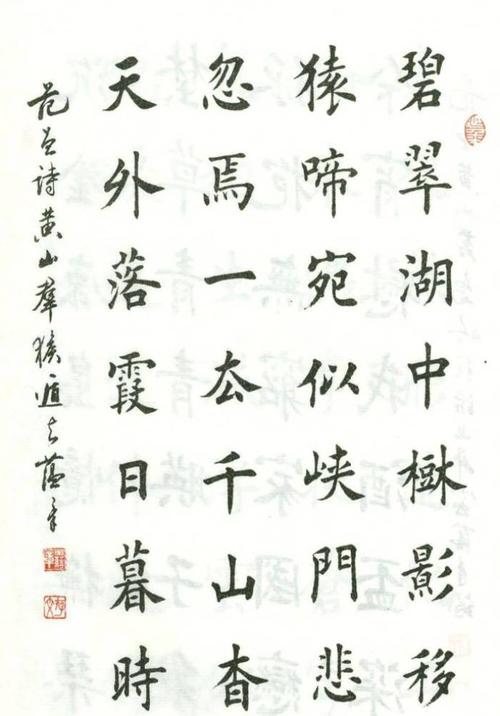 碧翠湖中樹影移
猿啼宛似峽門悲
忽焉一厺千山杳
天外落霞日暮時
范曾詩黃山羣猴遁去